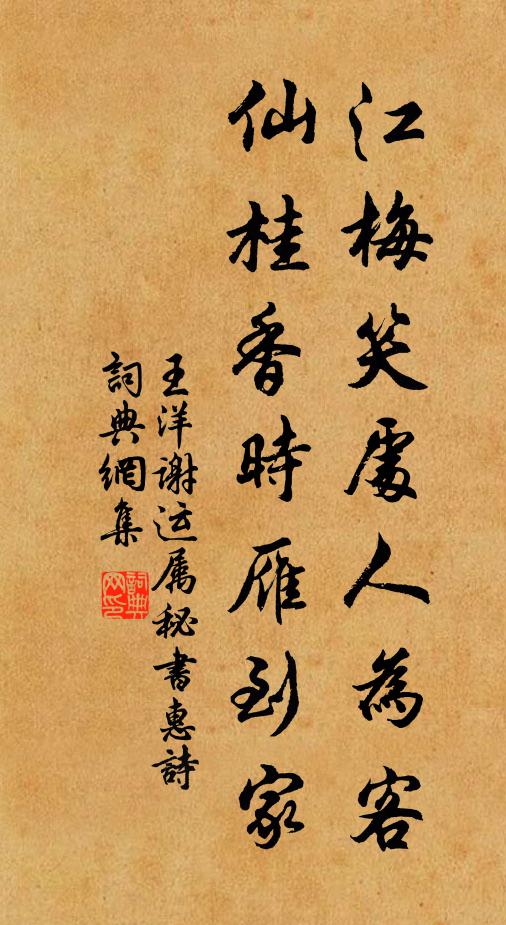 江梅笑處人為客
仙桂香時雁到家
王洋謝运属秘書惠詩
詞典網集
詞典网印